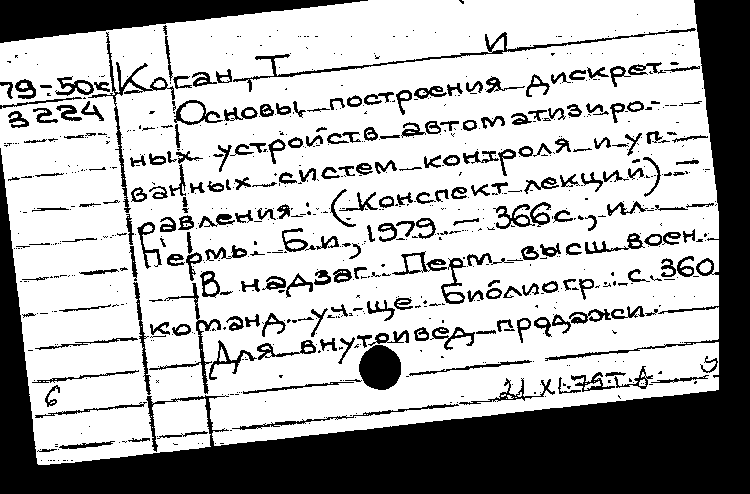 79-50к Коган, Т И
3224 Основы построения дискрет-
ных устройств автоматизиро-
ванных систем контроля и уп-
равления: (Конспект лекций) —
Пермь: Б.и., 1979 — 366с., ил.
В надзаг.: Перм. высш воен.
команд. уч-ще. Библиогр.: с. 360
Для внутривед. продажи.
6 21.XI.79г.